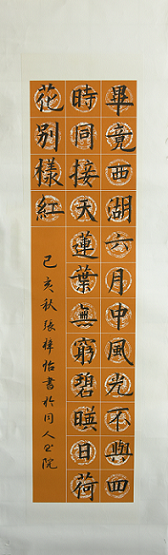 畢竟西湖六月中風光不與四
時同接天蓮葉無窮碧暎日荷
花别樣紅
己亥秋張梓怡書於同人書院